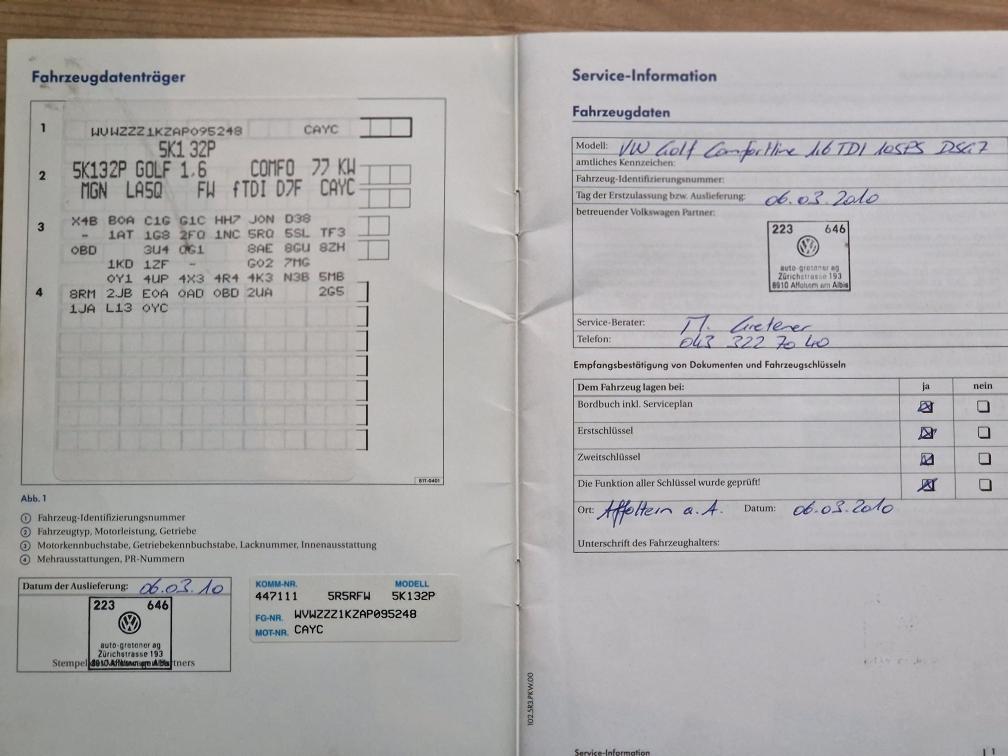 Fahrzeugdatenträger
1 WVWZZZ1KZAP095248 CAYC
5K132P
2 5K132P GOLF 1.6 COMFO 77 KW
MGN LA5Q FW fTDI D7F CAYC
X4B B0A C1G G1C HH7 J0N D38
3 - 1AT 1G8 2F0 1NC 5RQ 5SL TF3
0BD 3U4 0G1 8AE 8GU 8ZH
1KD 1ZF - G02 7MG
0Y1 4UP 4X3 4R4 4K3 N3B 5MB
4 8RM 2JB E0A 0AD 0BD 2UA 2G5
1JA L13 0YC
B1T-0401
Abb. 1
1 Fahrzeug-Identifizierungsnummer
2 Fahrzeugtyp, Motorleistung, Getriebe
3 Motorkennbuchstabe, Getriebekennbuchstabe, Lacknummer, Innenausstattung
4 Mehrausstattungen, PR-Nummern
Datum der Auslieferung: 06.03.10
223 646
auto-gretener ag
Zürichstrasse 193
8910 Affoltern am Albis
KOMM-NR. MODELL
447111 5R5RFW 5K132P
FG-NR. WVWZZZ1KZAP095248
MOT-NR. CAYC
102.5R3.PKW.00
Service-Information
Fahrzeugdaten
Modell: VW Golf Comfortline 1.6 TDI 105PS DSG7
amtliches Kennzeichen:
Fahrzeug-Identifizierungsnummer:
Tag der Erstzulassung bzw. Auslieferung: 06.03.2010
betreuender Volkswagen Partner:
223 646
auto-gretener ag
Zürichstrasse 193
8910 Affoltern am Albis
Service-Berater: M. Gretener
Telefon: 043 322 70 40
Empfangsbestätigung von Dokumenten und Fahrzeugschlüsseln
Dem Fahrzeug lagen bei: ja nein
Bordbuch inkl. Serviceplan
Erstschlüssel
Zweitschlüssel
Die Funktion aller Schlüssel wurde geprüft!
Ort: Affoltern a. A. Datum: 06.03.2010
Unterschrift des Fahrzeughalters:
Service-Information 1